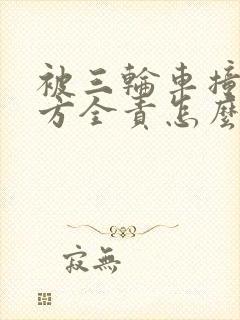 被三輪車撞
方全責怎麼
寂無